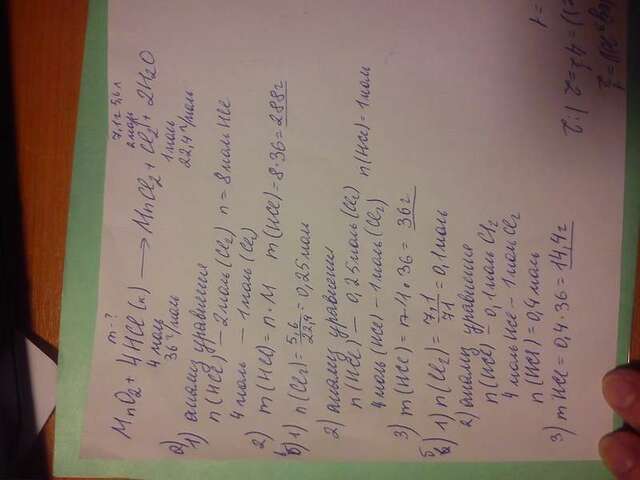 m-?
7,1г 5,6л
2моль
MnO₂ + 4HCl(к) ⟶ MnCl₂ + Cl₂↑ + 2H₂O
4 моль
1 моль
36 г/моль
22,4 г/моль
а)
1) анализ уравнения
n(HCl) – 2моль(Cl₂) n = 8 моль HCl
4 моль – 1 моль (Cl₂)
2) m(HCl) = n·M m(HCl) = 8·36 = 288г
б) 1) n(Cl₂) = 5,6/22,4 = 0,25 моль
2) анализ уравнения
n(HCl) – 0,25 моль (Cl₂)
4 моль (HCl) – 1 моль (Cl₂) n(HCl) = 1 моль
3) m(HCl = n·1·36 = 36г
в) 1) n(Cl₂) = 7,1/71 = 0,1 моль
2) анализ уравнения
n(HCl) – 0,1 моль Cl₂
4 моль HCl – 1 моль Cl₂
n(HCl) = 0,4 моль
3) m HCl = 0,4·36 = 14,4г